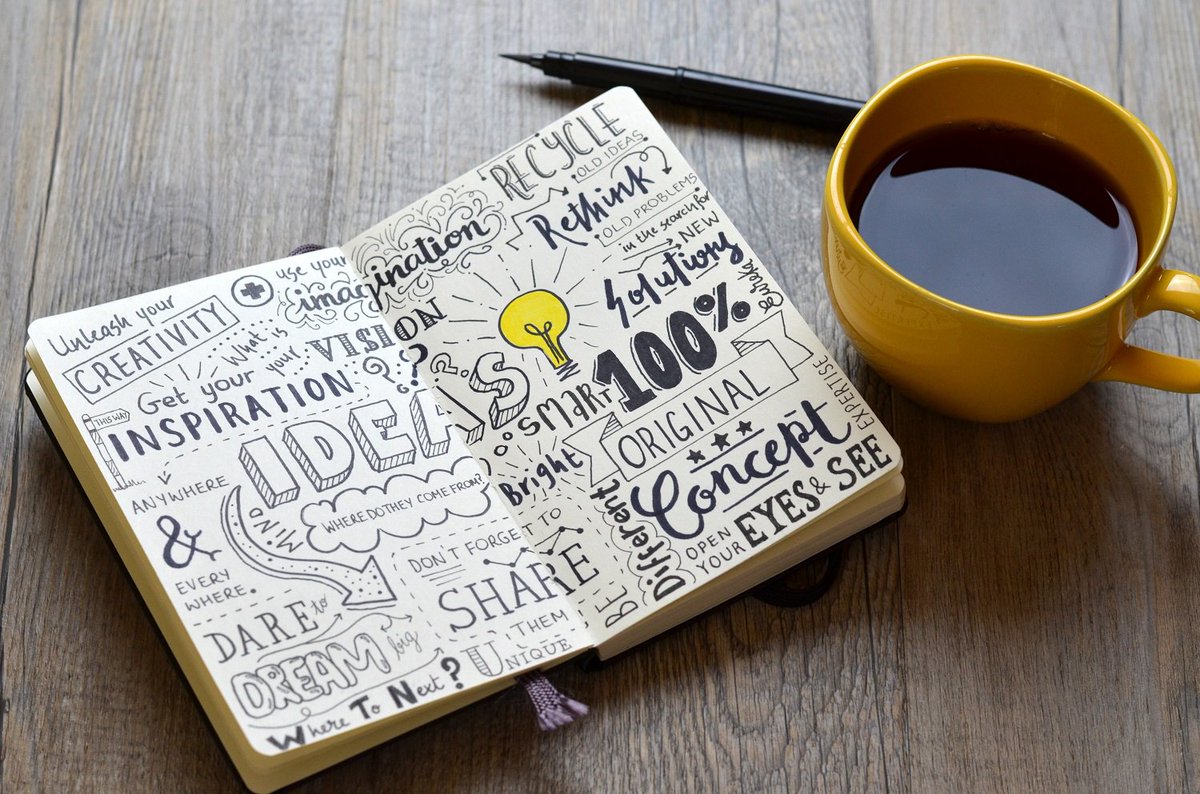 Unleash your
CREATIVITY
use your
imagination
What is
your
VISION
Get your
INSPIRATION
THIS WAY
ANYWHERE
&
EVERY
WHERE.
IDEAS
MIND
WHERE DO THEY COME FROM?
DON'T FORGET TO
SHARE
THEM
DARE to
DREAM big
Where To Next?
UNIQUE
RECYCLE
OLD IDEAS
Rethink
OLD PROBLEMS
in the search for
NEW
Solutions
SMART
100%
ORIGINAL
EXPERTISE
Bright
Concept
BE
Different
OPEN
YOUR
EYES & SEE